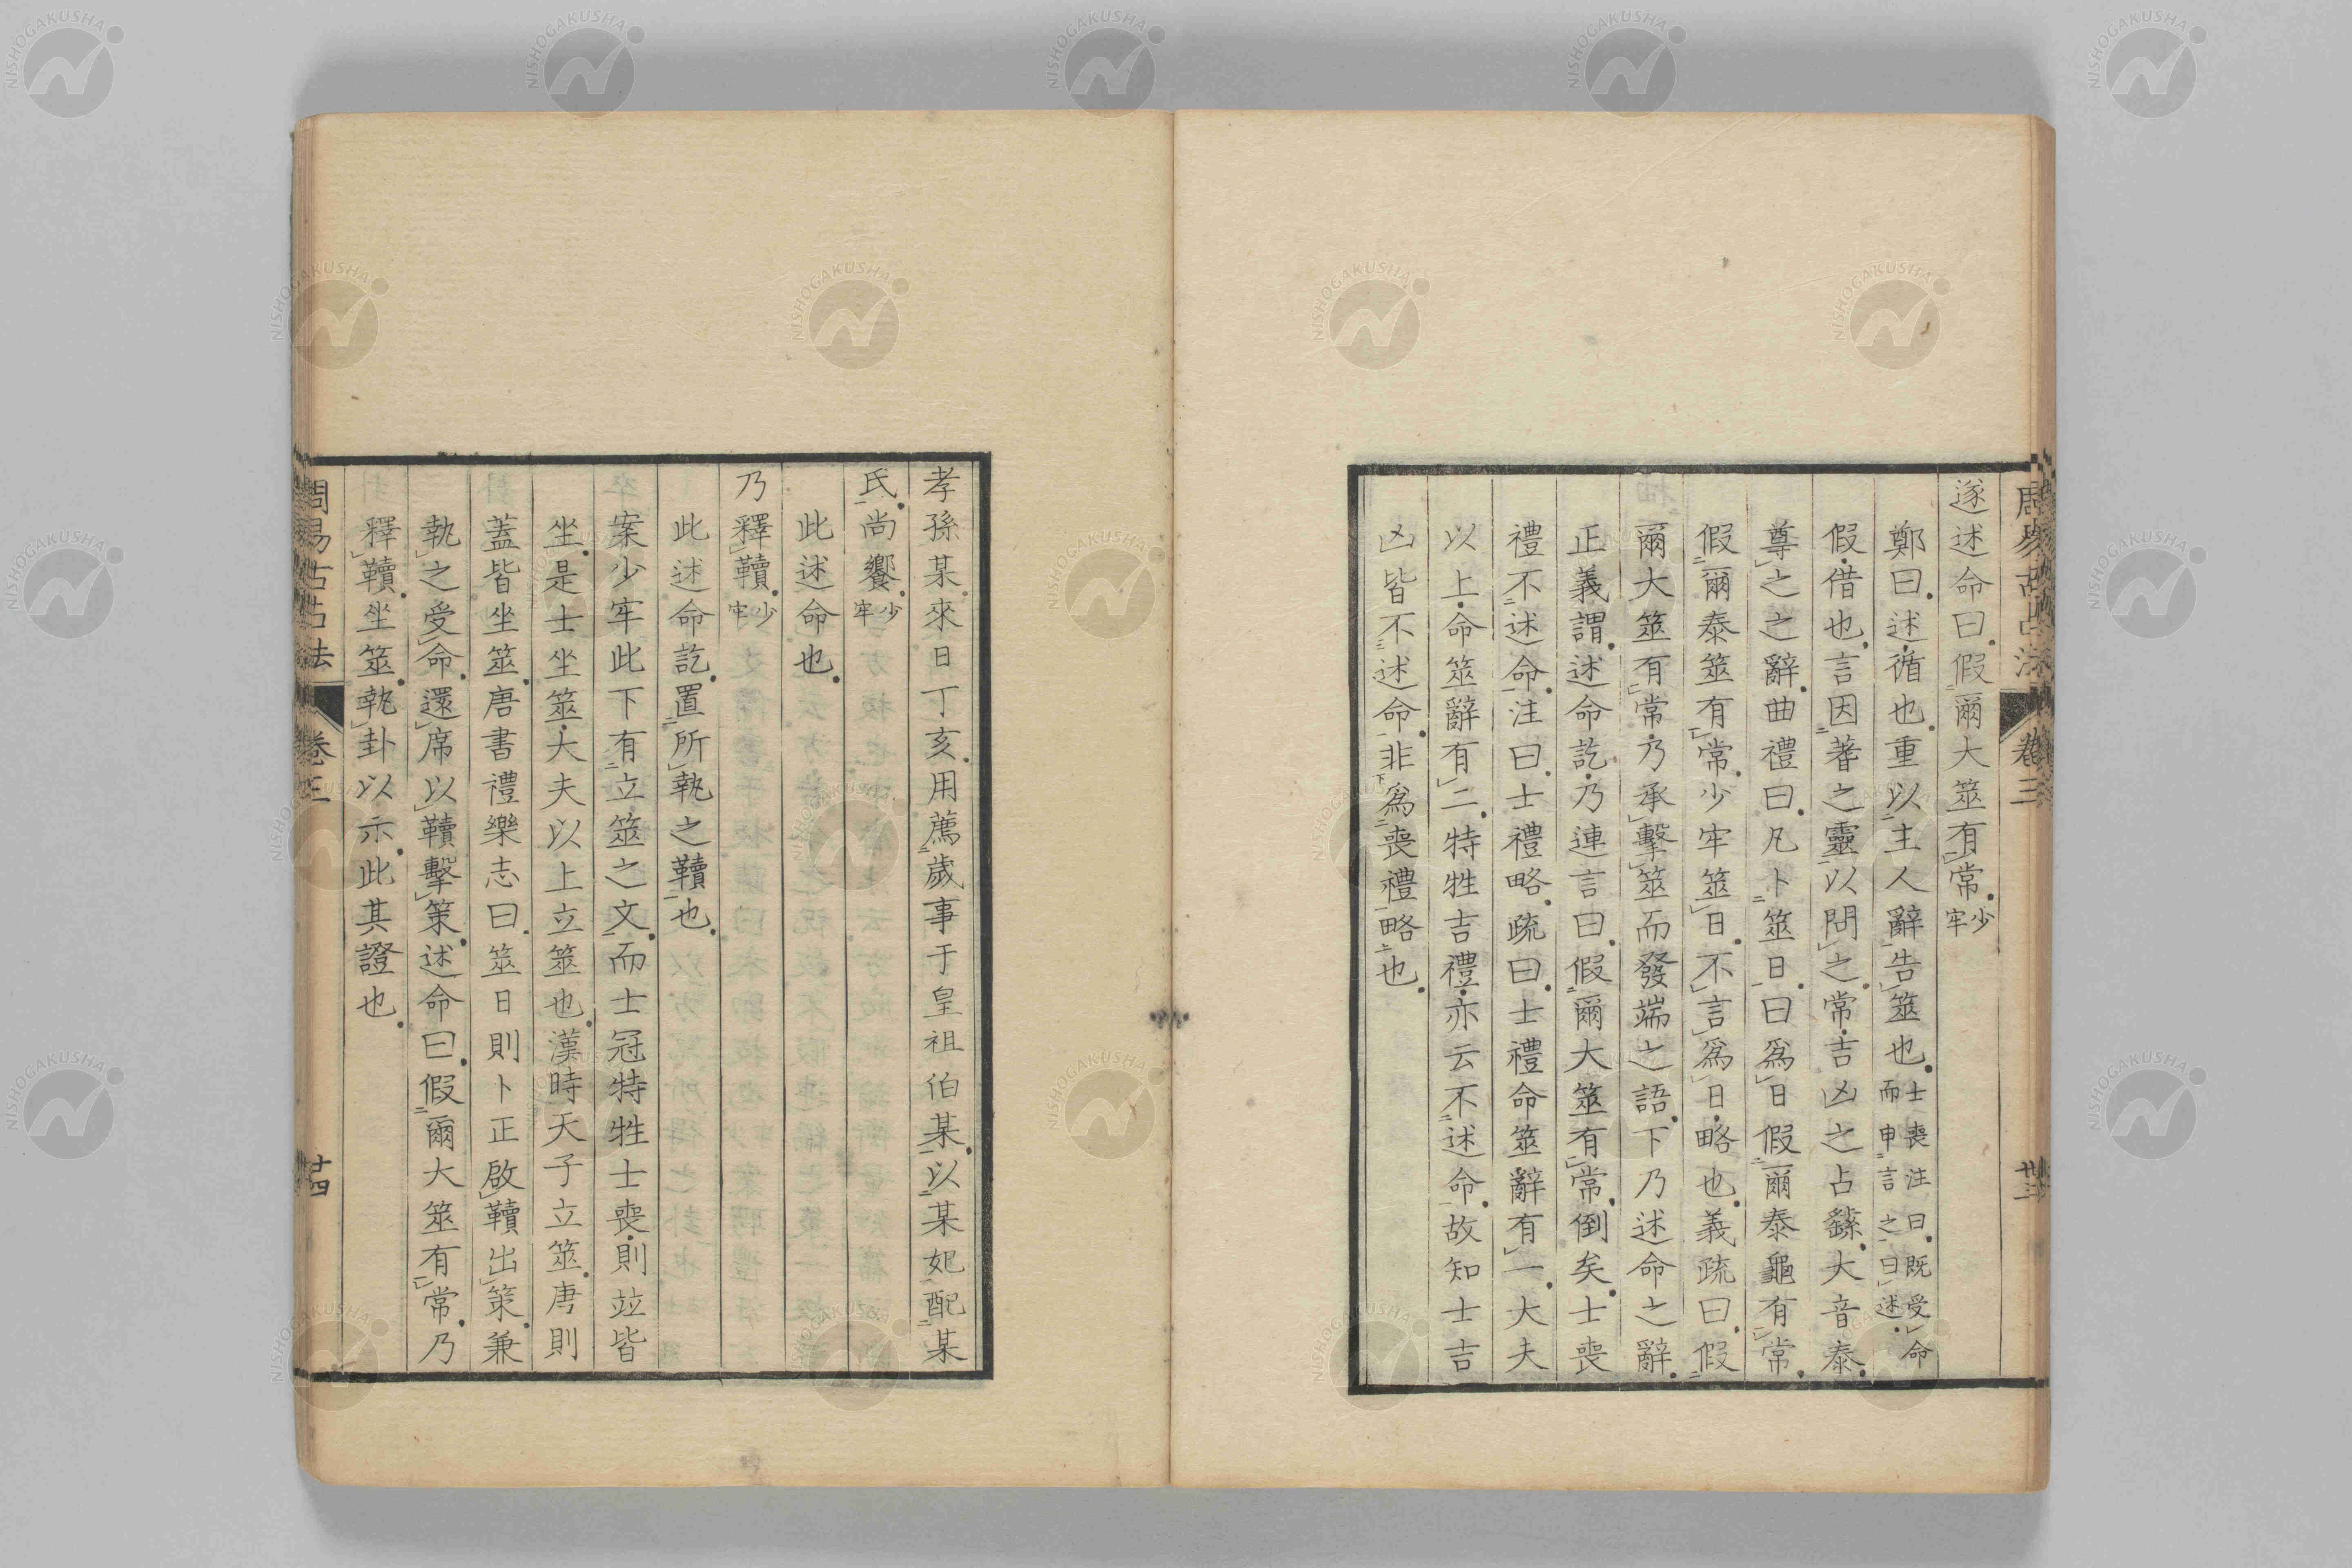 周易古占法 卷三 廿三
遂述命曰假爾大筮有常少牢
鄭曰述循也重以主人辭告筮也士喪注曰既受命而申言之曰述
假借也言因蓍之靈以問之常吉凶之占繇大音泰
尊之之辭曲禮曰凡卜筮日曰爲日假爾泰龜有常
假爾泰筮有常少牢筮日不言爲日略也義疏曰假
爾大筮有常乃承擊筮而發端之語下乃述命之辭
正義謂述命訖乃連言曰假爾大筮有常倒矣士喪
禮不述命注曰士禮略疏曰士禮命筮辭有一大夫
以上命筮辭有二特牲吉禮亦云不述命故知士吉
凶皆不述命非爲喪禮略也
孝孫某來日丁亥用薦歲事于皇祖伯某以某妃配某
氏尚饗少牢
此述命也
乃釋韇少牢
此述命訖置所執之韇也
案少牢此下有立筮之文而士冠特牲士喪則竝皆
坐是士坐筮大夫以上立筮也漢時天子立筮唐則
蓋皆坐筮唐書禮樂志曰筮日則卜正啟韇出策兼
執之受命還席以韇擊策述命曰假爾大筮有常乃
釋韇坐筮執卦以示此其證也
周易古占法 卷三 十四
NISHOGAKUSHA